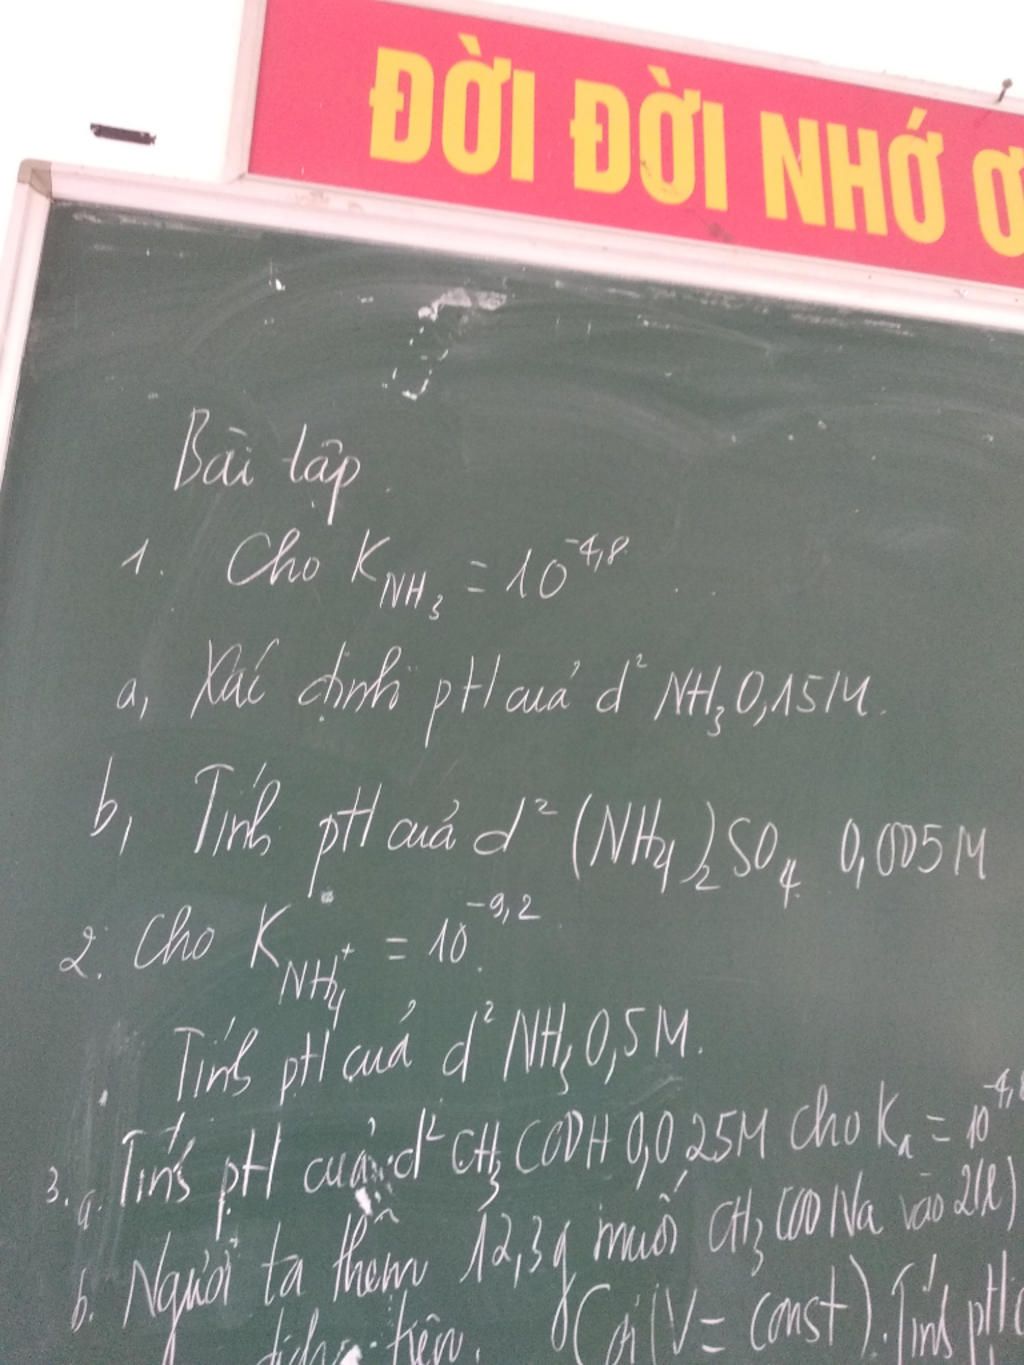 ĐỜI ĐỜI NHỚ Ơ
Bài tập
1. Cho K_NH₃ = 10^-4,8
a, Xác định pH của d² NH₃ 0,15M.
b, Tính pH của d² (NH₄)₂SO₄ 0,005M
2. Cho K_NH₄⁺ = 10^-9,2.
Tính pH của d² NH₃ 0,5M.
3. a. Tính pH của d² CH₃COOH 0,025M cho Kₐ = 10^-4,8
b. Người ta thêm 12,3g muối CH₃COONa vào 2(l)
dịch trên. (Coi V = const). Tính pH